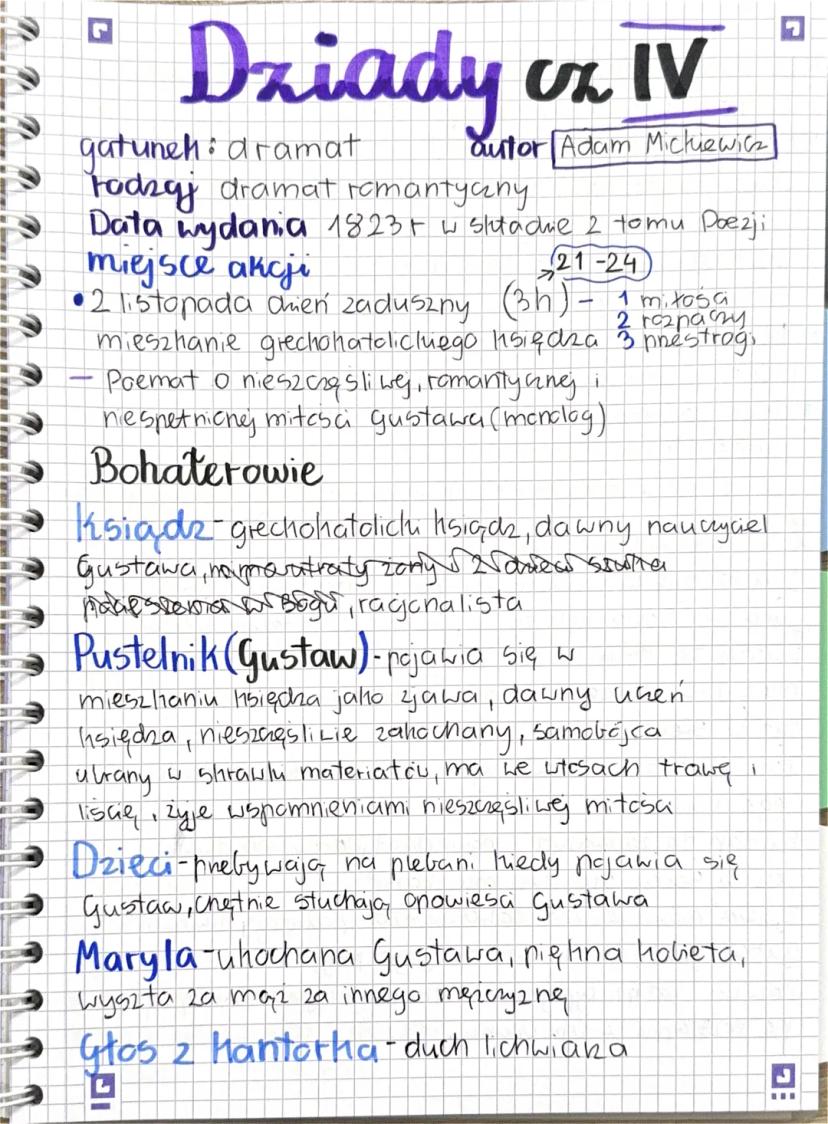 Dziady cz IV
gatunek: dramat autor Adam Mickiewicz
rodzaj dramat romantyczny
Data wydania 1823 r w składzie 2 tomu Poezji
miejsce akcji 21-24
• 2 listopada dzień zaduszny (3h) - 1 miłości
2 rozpaczy
mieszkanie grechokatolickiego księdza 3 przestrogi
— Poemat o nieszczęśliwej, romantycznej i
niespełnionej miłości Gustawa (monolog)
Bohaterowie
Ksiądz - grechokatolicki ksiądz, dawny nauczyciel
Gustawa, , racjonalista
Pustelnik (Gustaw) - pojawia się w
mieszkaniu księdza jako zjawa, dawny uczeń
księdza, nieszczęśliwie zakochany, samobójca
ubrany w skrawki materiału, ma we włosach trawę i
liście, żyje wspomnieniami nieszczęśliwej miłości
Dzieci - przebywają na plebani kiedy pojawia się
Gustaw, chętnie słuchają opowieści Gustawa
Maryla - ukochana Gustawa, piękna kobieta,
wyszła za mąż za innego mężczyznę
Głos z kantorka - duch lichwiarza